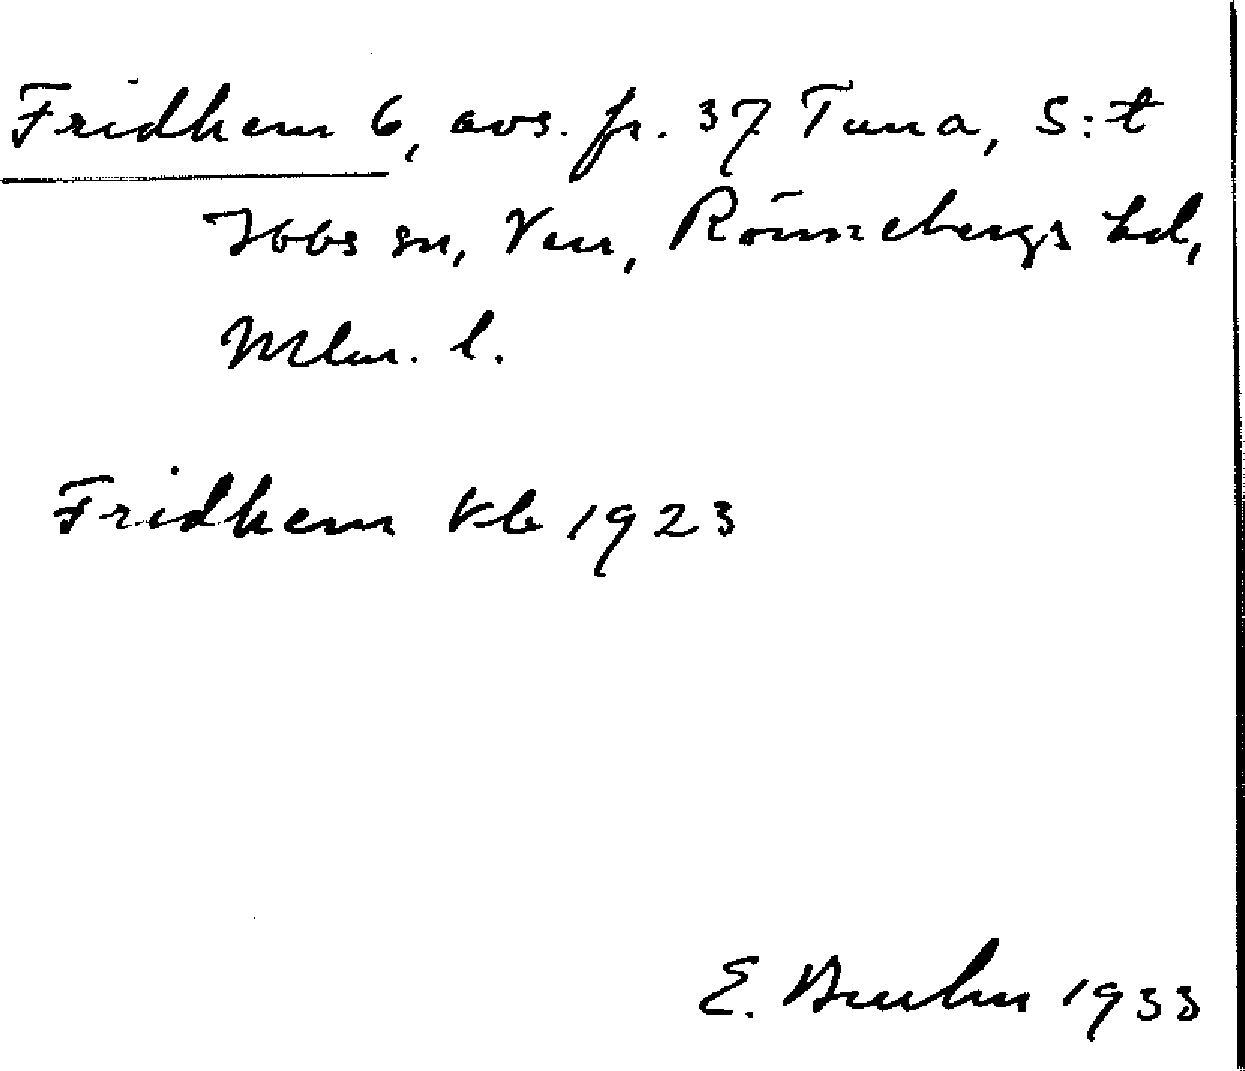 Fridhem 6, avs. fr. 37 Tuna, S:t
Ibbs sn, Ven, Rönnebergs hd,
Mlm. l.
Fridhem Vb 1923
E. Bruhn 1933